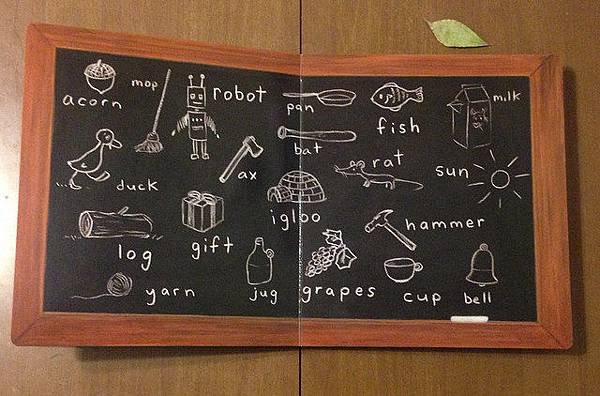 acorn
mop
robot
pan
fish
milk
bat
duck
ax
rat
sun
igloo
log
gift
hammer
yarn
jug
grapes
cup
bell